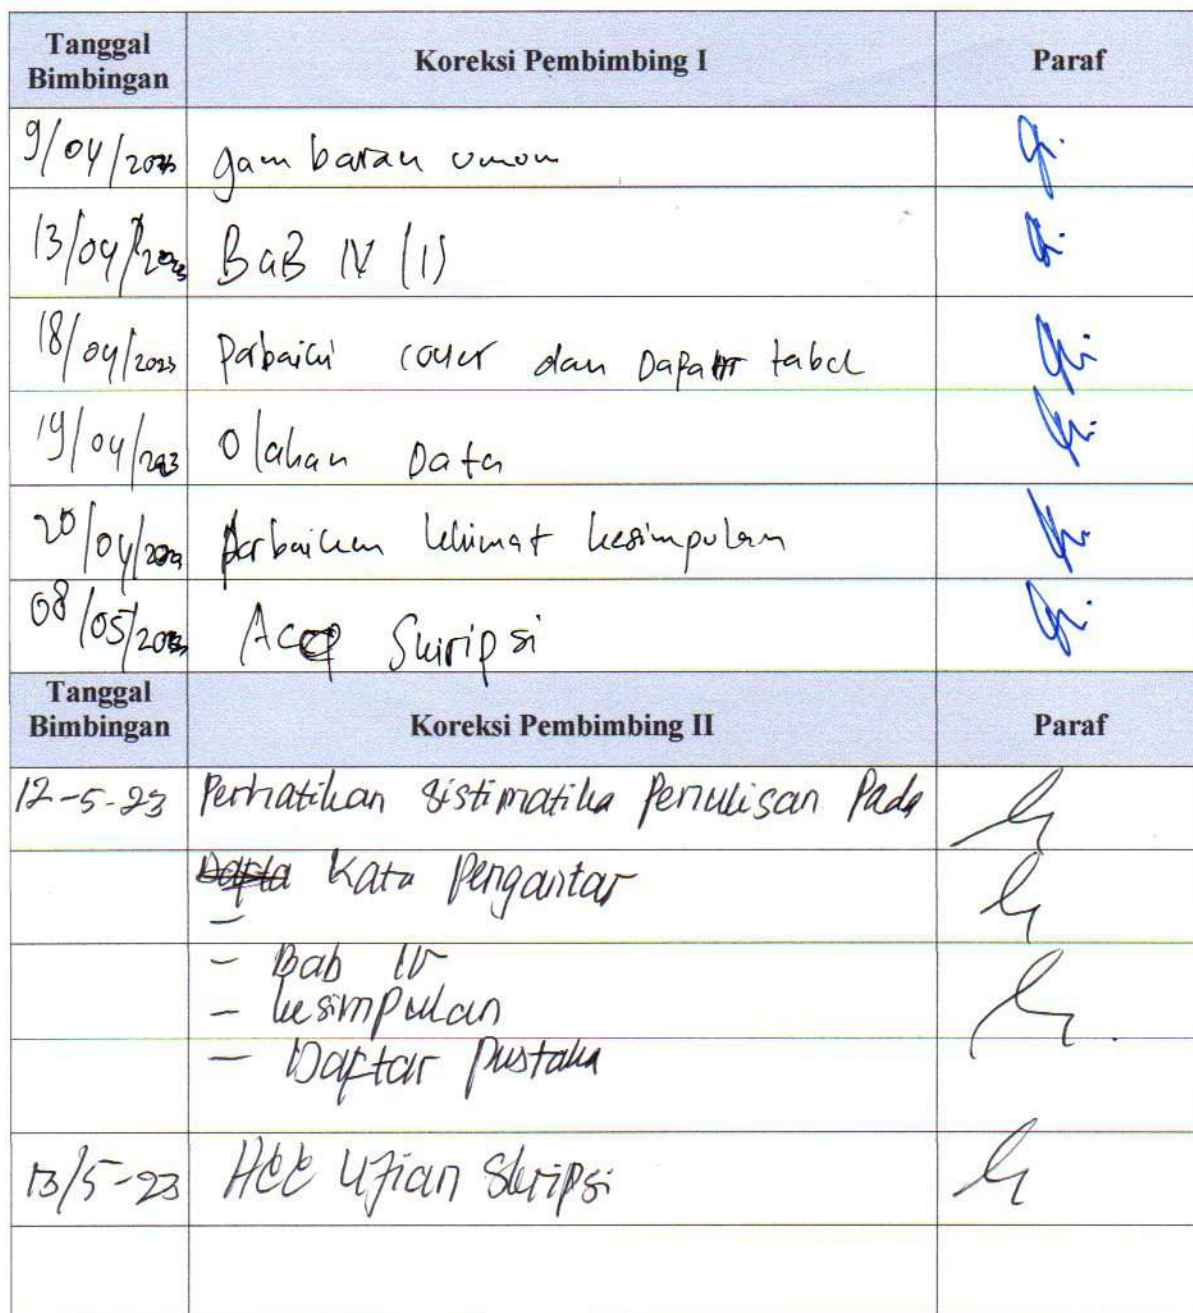 Tanggal Bimbingan Koreksi Pembimbing I Paraf
9/04/2023 gambaran umum
13/04/2023 BaB IV (1)
18/04/2023 perbaiki cover dan Dapatar tabel
19/04/2023 Olahan Data
20/04/2023 perbaikan kalimat kesimpulan
08/05/2023 Acc Skripsi
Tanggal Bimbingan Koreksi Pembimbing II Paraf
12-5-23 Perhatikan sistimatika Penulisan Pada
Kata Pengantar
-
- Bab IV
- kesimpulan
- Daftar Pustaka
13/5-23 Acc Ujian Skripsi